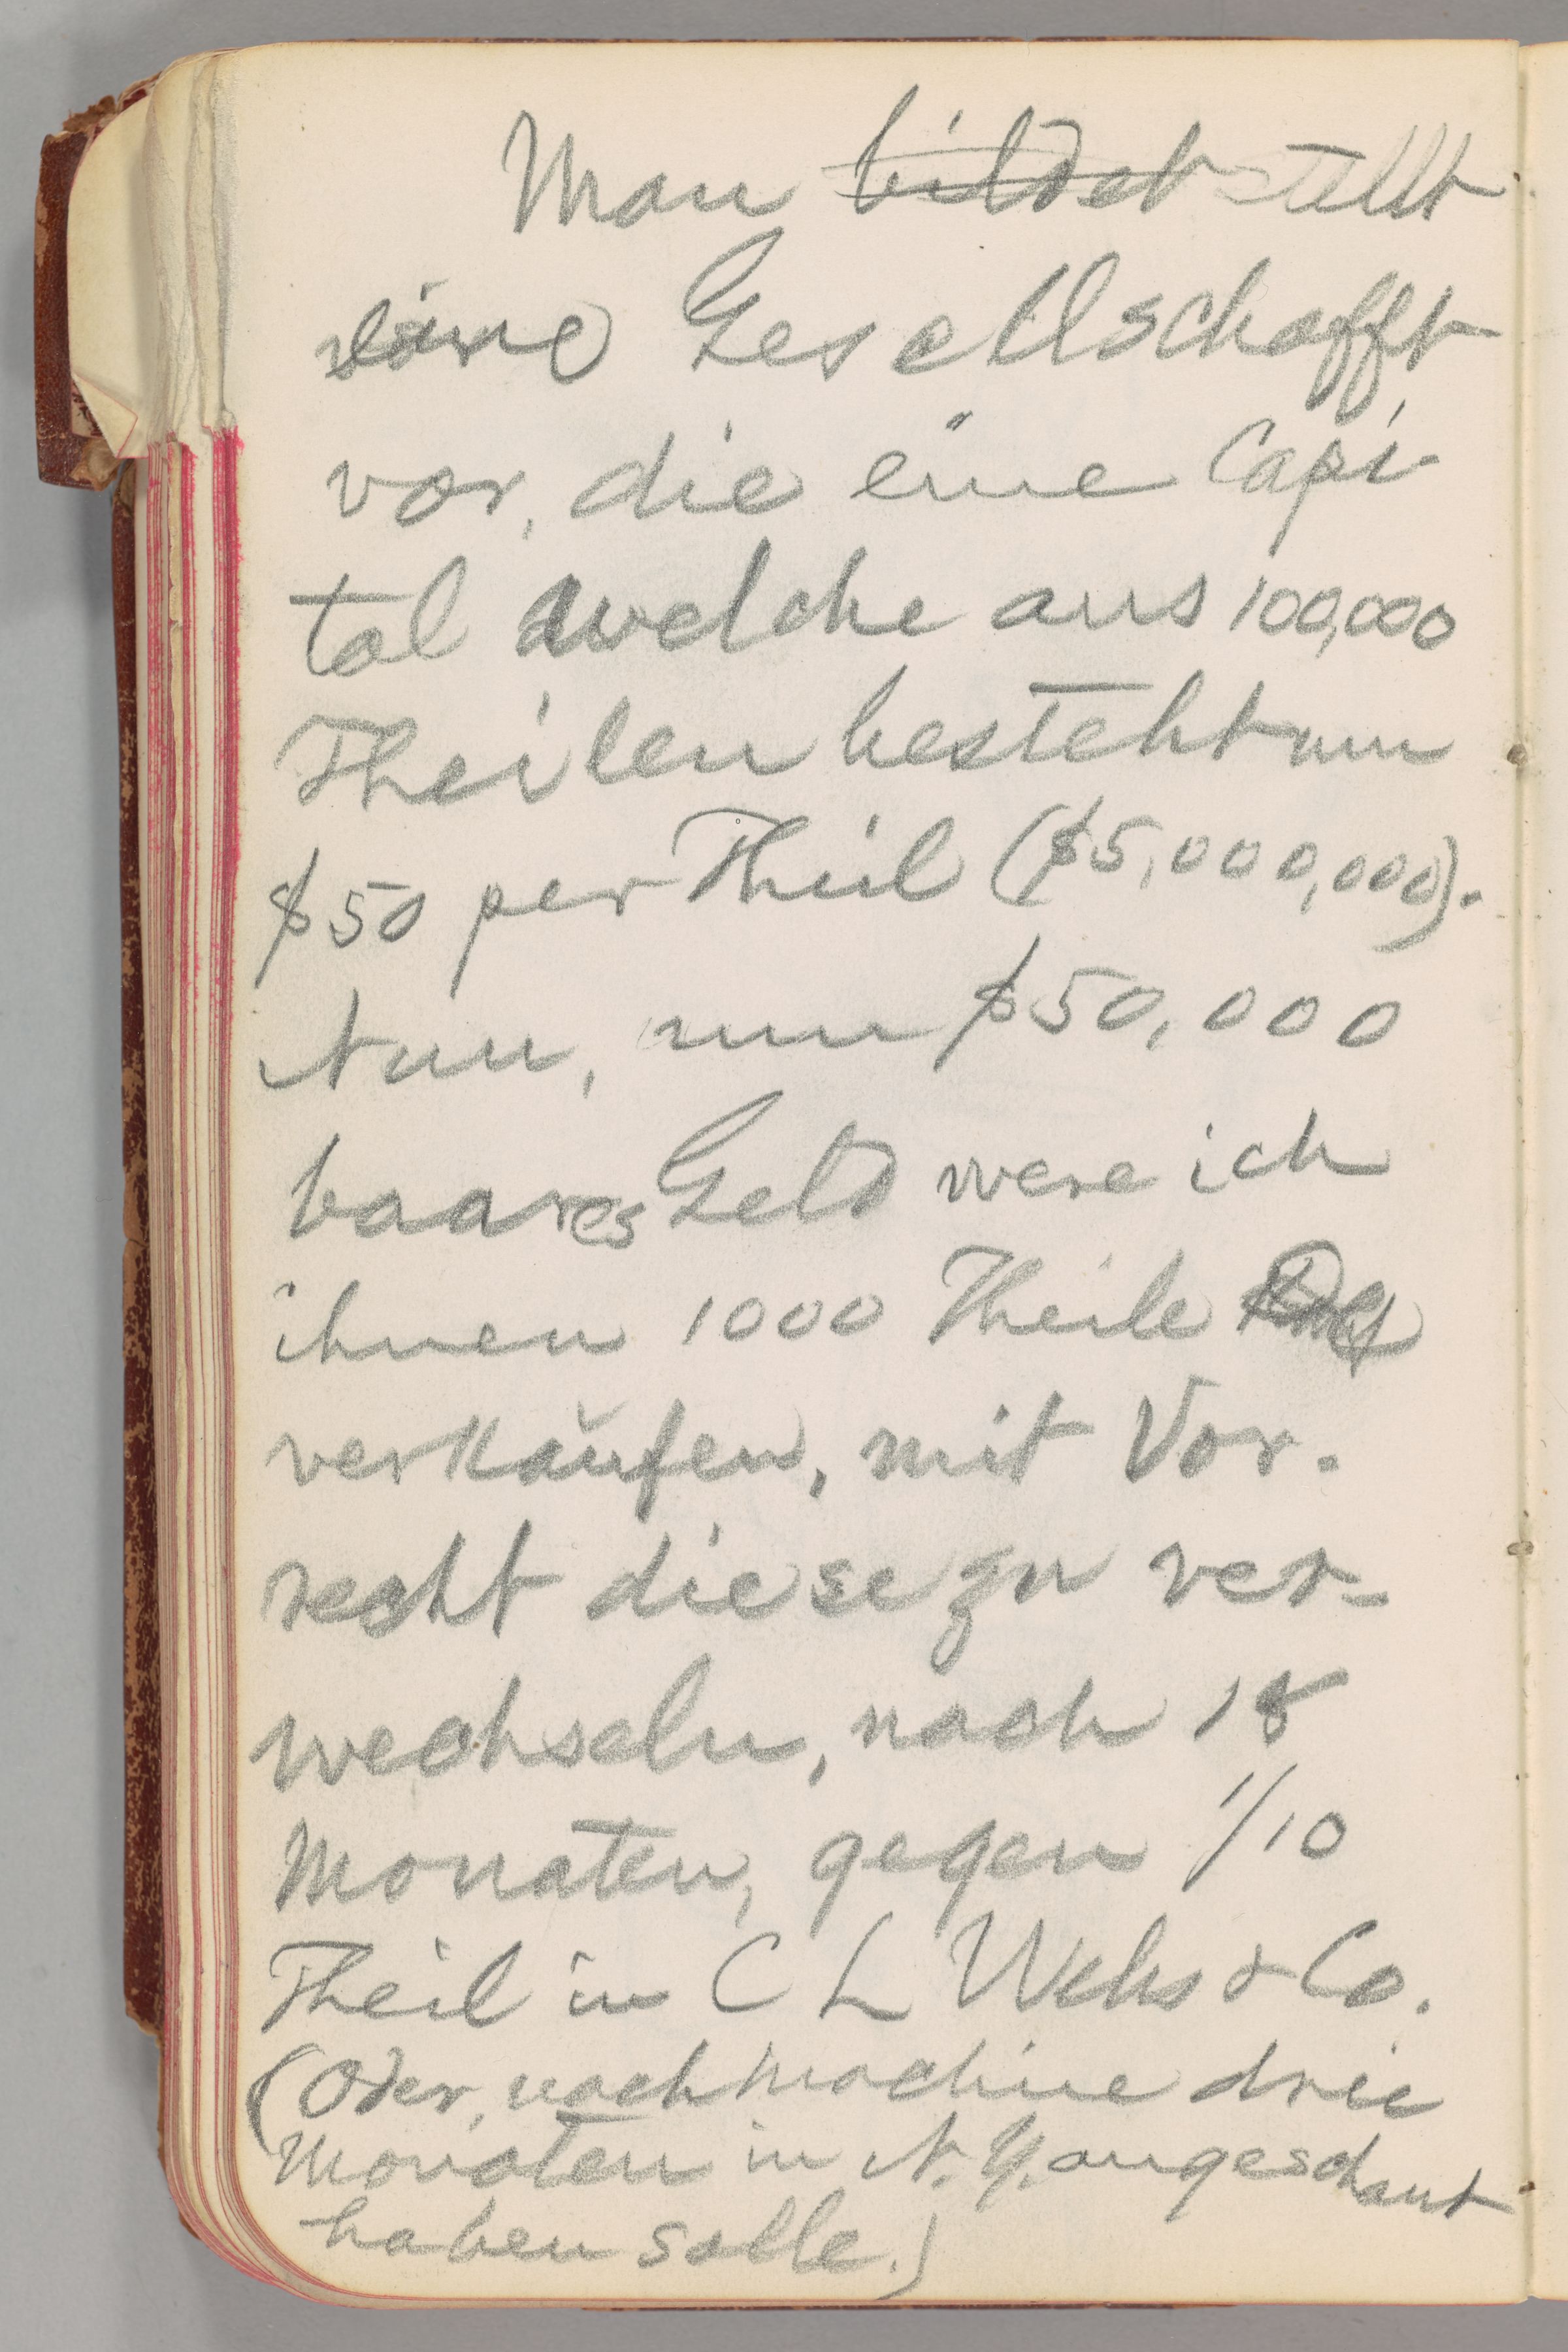 Man bildet stellt
eine Gesellschafft
vor, die eine Capi-
tal welche aus 100,000
Theilen besteht um
$50 per Theil ($5,000,000).
Nun, um $50,000
baares Geld were ich
ihnen 1000 Theile
verkaufen, mit Vor-
recht diese zu ver-
wechseln, nach 18
Monaten, gegen 1/10
Theil in C L Webs & Co.
(Oder, nach machine drei
Monaten in N. Y. angeschaut
haben solle.)